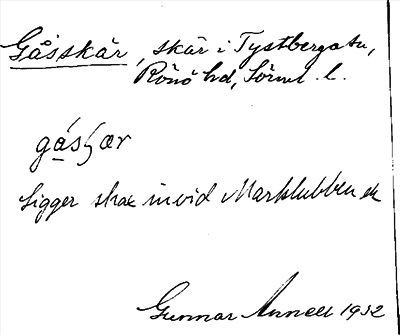 Gåsskär, skär i Tystberga sn,
Rönö hd, Sörml. l.
gásʃær
Ligger strax invid Marklubben
Gunnar Annell 1932